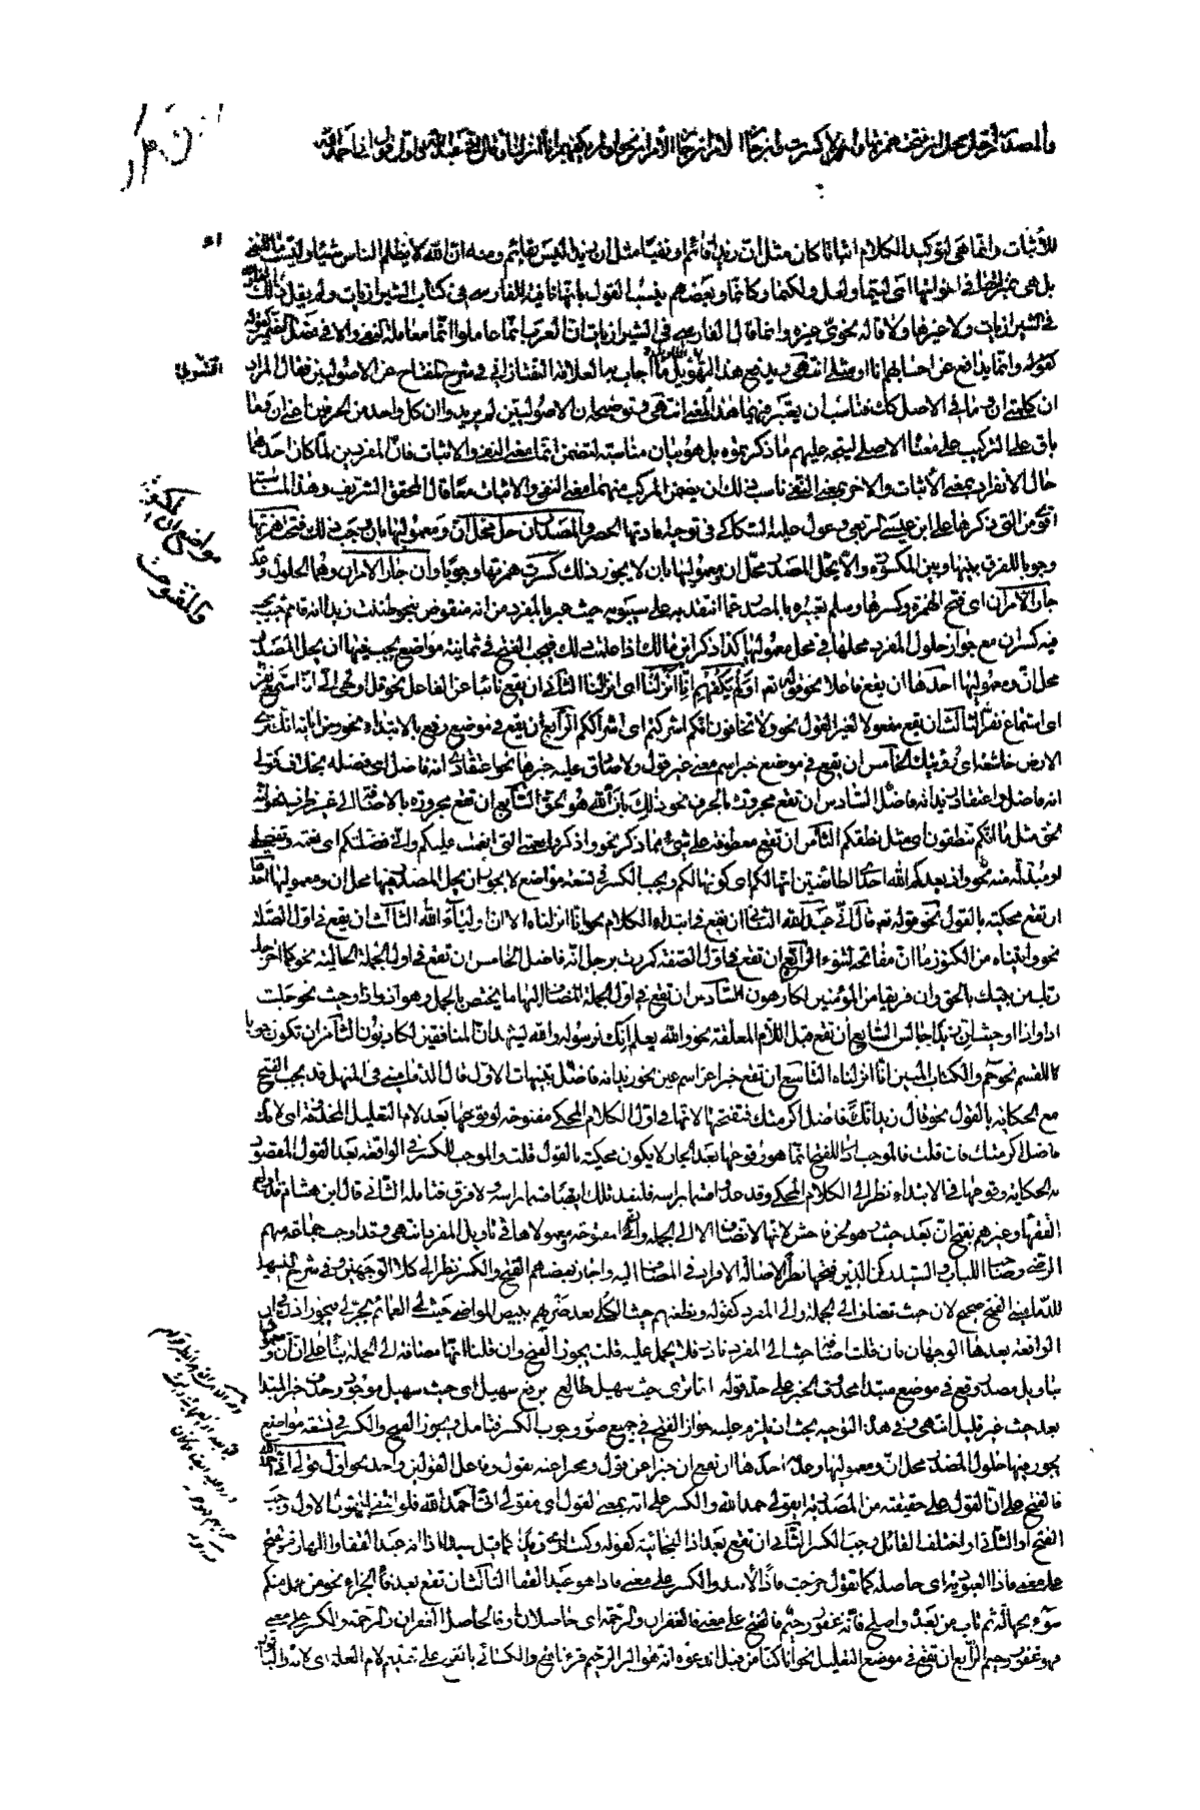 والمصدر إن حل محل إن فتحت همزتها وإلا كسرت وإن جاز الأمران جاز الأمران نحو أولم يكفهم أنا أنزلنا وقال إني عبد الله وأول قولي أني أحمد الله
للأثبات وانما هي لتوكيد الكلام اثباتا كان مثل ان زيدا قائم او نفيا مثل ان زيدا ليس بقائم ومنه ان الله لا يظلم الناس شيئا وليست ما للنفي
بل هي بمنزلتها في اخواتها اي ليتما ولعل ولكنما وكانما وبعضهم ينسب القول بانها نافية للفارسي في كتاب الشيرازيات ولم يقل ذلك
في الشيرازيات ولا غيرها ولا قاله نحوي غيره وانما قال الفارسي في الشيرازيات ان العرب انما عاملوا انما معاملة النفي والا في فصل الضمير كقوله
كقوله وانما يدافع عن احسابهم انا او مثلي انتهى ويدفع هذا التهويل ما اجاب به العلامة التفتازاني في شرح المفتاح عن الاصوليين فقال المراد
ان كلمتي ان وما في الاصل كك فناسب ان يعتبر فيهما هذا المعنى انتهى وتوضيحه ان الاصوليين لم يريدوا ان كل واحد من الحرفين اعني ان وما
باق على التركيب على معناه الاصلي ليتجه عليهم ما ذكرتموه بل هو بيان مناسبة لتضمن انما معنى النفي والاثبات فان المفردين لما كان احدهما
حال الانفراد بمعنى الاثبات والاخر بمعنى النفي ناسب ذلك ان يضمن المركب منهما معنى النفي والاثبات معا قال المحقق الشريف وهذا المناسبة
اقوى من التي ذكرها علي ابن عيسى الربعي وعول عليه السكاكي في توجيه افادتها الحصر والمصدر ان حل محل ان ومعموليها بان وجب ذلك فتحت همزتها
وجوبا للفرق بينها وبين المكسورة والا يحل المصدر محل ان ومعموليها بان لا يجوز ذلك كسرت همزتها وجوبا وان جاز الامران وهما الحلول وعدمه
جاز الامران اي فتح الهمزة وكسرها وسلم تعبيره بالمصدر عما انتقد به على سيبويه حيث عبر بالمفرد من انه منقوض بنحو ظننت زيدا انه قائم فيجب
فيه كسر ان مع جواز حلول المفرد محلها في محل معموليها كذا ذكر ابن مالك اذا علمت ذلك فيجب الفتح في ثمانية مواضع يجب فيها ان يحل المصدر
محل ان ومعموليها احدها ان يقع فاعلا نحو قوله تعالى اولم يكفهم انا انزلنا اي انزالنا الثاني ان يقع نائبا عن الفاعل نحو قل اوحي الي انه استمع نفر
اي استماع نفر الثالث ان يقع مفعولا لغير القول نحو ولا تخافون انكم اشركتم اي اشراككم الرابع ان يقع في موضع رفع بالابتداء نحو ومن اياته انك ترى
الارض خاشعة اي رؤيتك الخامس ان يقع في موضع خبر اسم معنى غير قول ولا صادق عليه خبرها نحو اعتقادي انه فاضل اي فضله بخلاف قولي
انه فاضل واعتقاد زيد انه فاضل السادس ان تقع مجرورة بالحرف نحو ذلك بان الله هو الحق السابع ان تقع مجرورة بالاضافة الى غير ظرف نحو انه
لحق مثل ما انكم تنطقون اي مثل نطقكم الثامن ان تقع معطوفة على شيء مما ذكر نحو اذكروا نعمتي التي انعمت عليكم واني فضلتكم اي نعمتي وتفضيلي
او مبدلة منه نحو واذ يعدكم الله احدى الطائفتين انها لكم اي كونها لكم ويجب الكسر في تسعة مواضع لا يجوز ان يحل المصدر فيها محل ان ومعموليها احدها
ان تقع محكية بالقول نحو قوله تعالى قال اني عبد الله الثاني ان تقع في ابتداء الكلام نحو انا انزلناه الا ان اولياء الله الثالث ان يقع في اول الصلة
نحو واتيناه من الكنوز ما ان مفاتحه لتنوء الرابع ان تقع في اول الصفة كمررت برجل انه فاضل الخامس ان تقع في اول الجملة الحالية نحو كما اخرجك
ربك من بيتك بالحق وان فريقا من المؤمنين لكارهون السادس ان تقع في اول الجملة المضاف اليها ما يختص بالجمل وهو اذ واذا وحيث نحو جلست
اذ او اذا او حيث ان زيدا جالس السابع ان تقع قبل اللام المعلقة نحو والله يعلم انك لرسوله والله يشهد ان المنافقين لكاذبون الثامن ان تكون جوابا
للقسم نحو حم والكتاب المبين انا انزلناه التاسع ان تقع خبرا عن اسم عين نحو زيد انه فاضل تنبيهات الاول قال الدماميني في المنهل قد يجب الفتح
مع الحكاية بالقول نحو قال زيد انك فاضل اكرمتك فتفتحها لانها في اول الكلام المحكي مفتوحة لوقوعها بعد لام التعليل المحذوفة اي لانك
فاضل اكرمتك فان قلت فالموجب اذا للفتح انما هو وقوعها بعد الجار لا يكون محكية بالقول قلت والموجب للكسر في الواقعة بعد القول المقصود
به الحكاية وقوعها في الابتداء نظرا الى الكلام المحكي وقد عدوا قسما براسه فليعد تلك ايضا قسما براسه ولا فرق فتامله الثاني قال ابن هشام قد اولع
الفقهاء وغيرهم بفتح ان بعد حيث وهو لحن فاحش لانها لا تضاف الا الى الجملة وان المفتوحة ومعمولاها في تاويل المفرد انتهى وقد اوجب جماعة منهم
الرضي وصاحب اللباب والسيد ركن الدين فتحها نظرا لاصالة الافراد في المضاف اليه واجاز بعضهم الفتح والكسر نظرا الى كلا الوجهين وفي شرح التسهيل
للدماميني الفتح صحيح لان حيث تضاف الى الجملة والى المفرد كقوله ونطعنهم حيث الكلى بعد ضربهم ببيض المواضي حيث لي العمائم فيجوز اذن في ان
الواقعة بعدها الوجهان فان قلت اضافة حيث الى المفرد نادر فلا يحمل عليه قلت يجوز الفتح وان قلنا انها مضافة الى الجملة بناء على ان ان ومعموليها
بتاويل مصدر وقع في موضع مبتدا محذوف الخبر على حد قوله اما ترى حيث سهيل طالع برفع سهيل اي حيث سهيل موجود وحذف خبر المبتدا
بعد حيث غير قليل انتهى وفي هذا التوجيه بحث اذ يلزم عليه جواز الفتح في جميع صور وجوب الكسر فتامل ويجوز الفتح والكسر في تسعة مواضع
يجوز فيها حلول المصدر محل ان ومعموليها وعدمه احدها ان تقع ان خبرا عن قول ومخبرا عنه بقول وفاعل القولين واحد نحو اول قولي اني احمد الله
فالفتح على ان القول على حقيقته من المصدرية اي قولي حمد الله والكسر على انه بمعنى المقول اي مقولي اني احمد الله فلو انتفى القول الاول وجب
الفتح او الثاني او اختلف القائل وجب الكسر الثاني ان تقع بعد اذا الفجائية كقوله وكنت ارى زيدا كما قيل سيدا اذا انه عبد القفا واللهازم فالفتح
على معنى فاذا العبودية اي حاصلة كما تقول خرجت فاذا الاسد والكسر على معنى فاذا هو عبد القفا الثالث ان تقع بعد فاء الجزاء نحو من عمل منكم
سوء بجهالة ثم تاب من بعده واصلح فانه غفور رحيم فالفتح على معنى فالغفران والرحمة اي حاصلان او فالحاصل الغفران والرحمة والكسر على معنى
فهو غفور رحيم الرابع ان تقع في موضع التعليل نحو انا كنا من قبل ندعوه انه هو البر الرحيم قرء نافع والكسائي بالفتح على تقدير لام العلة اي لانه والباقون
مواضع ان المكسورة
والمفتوحة